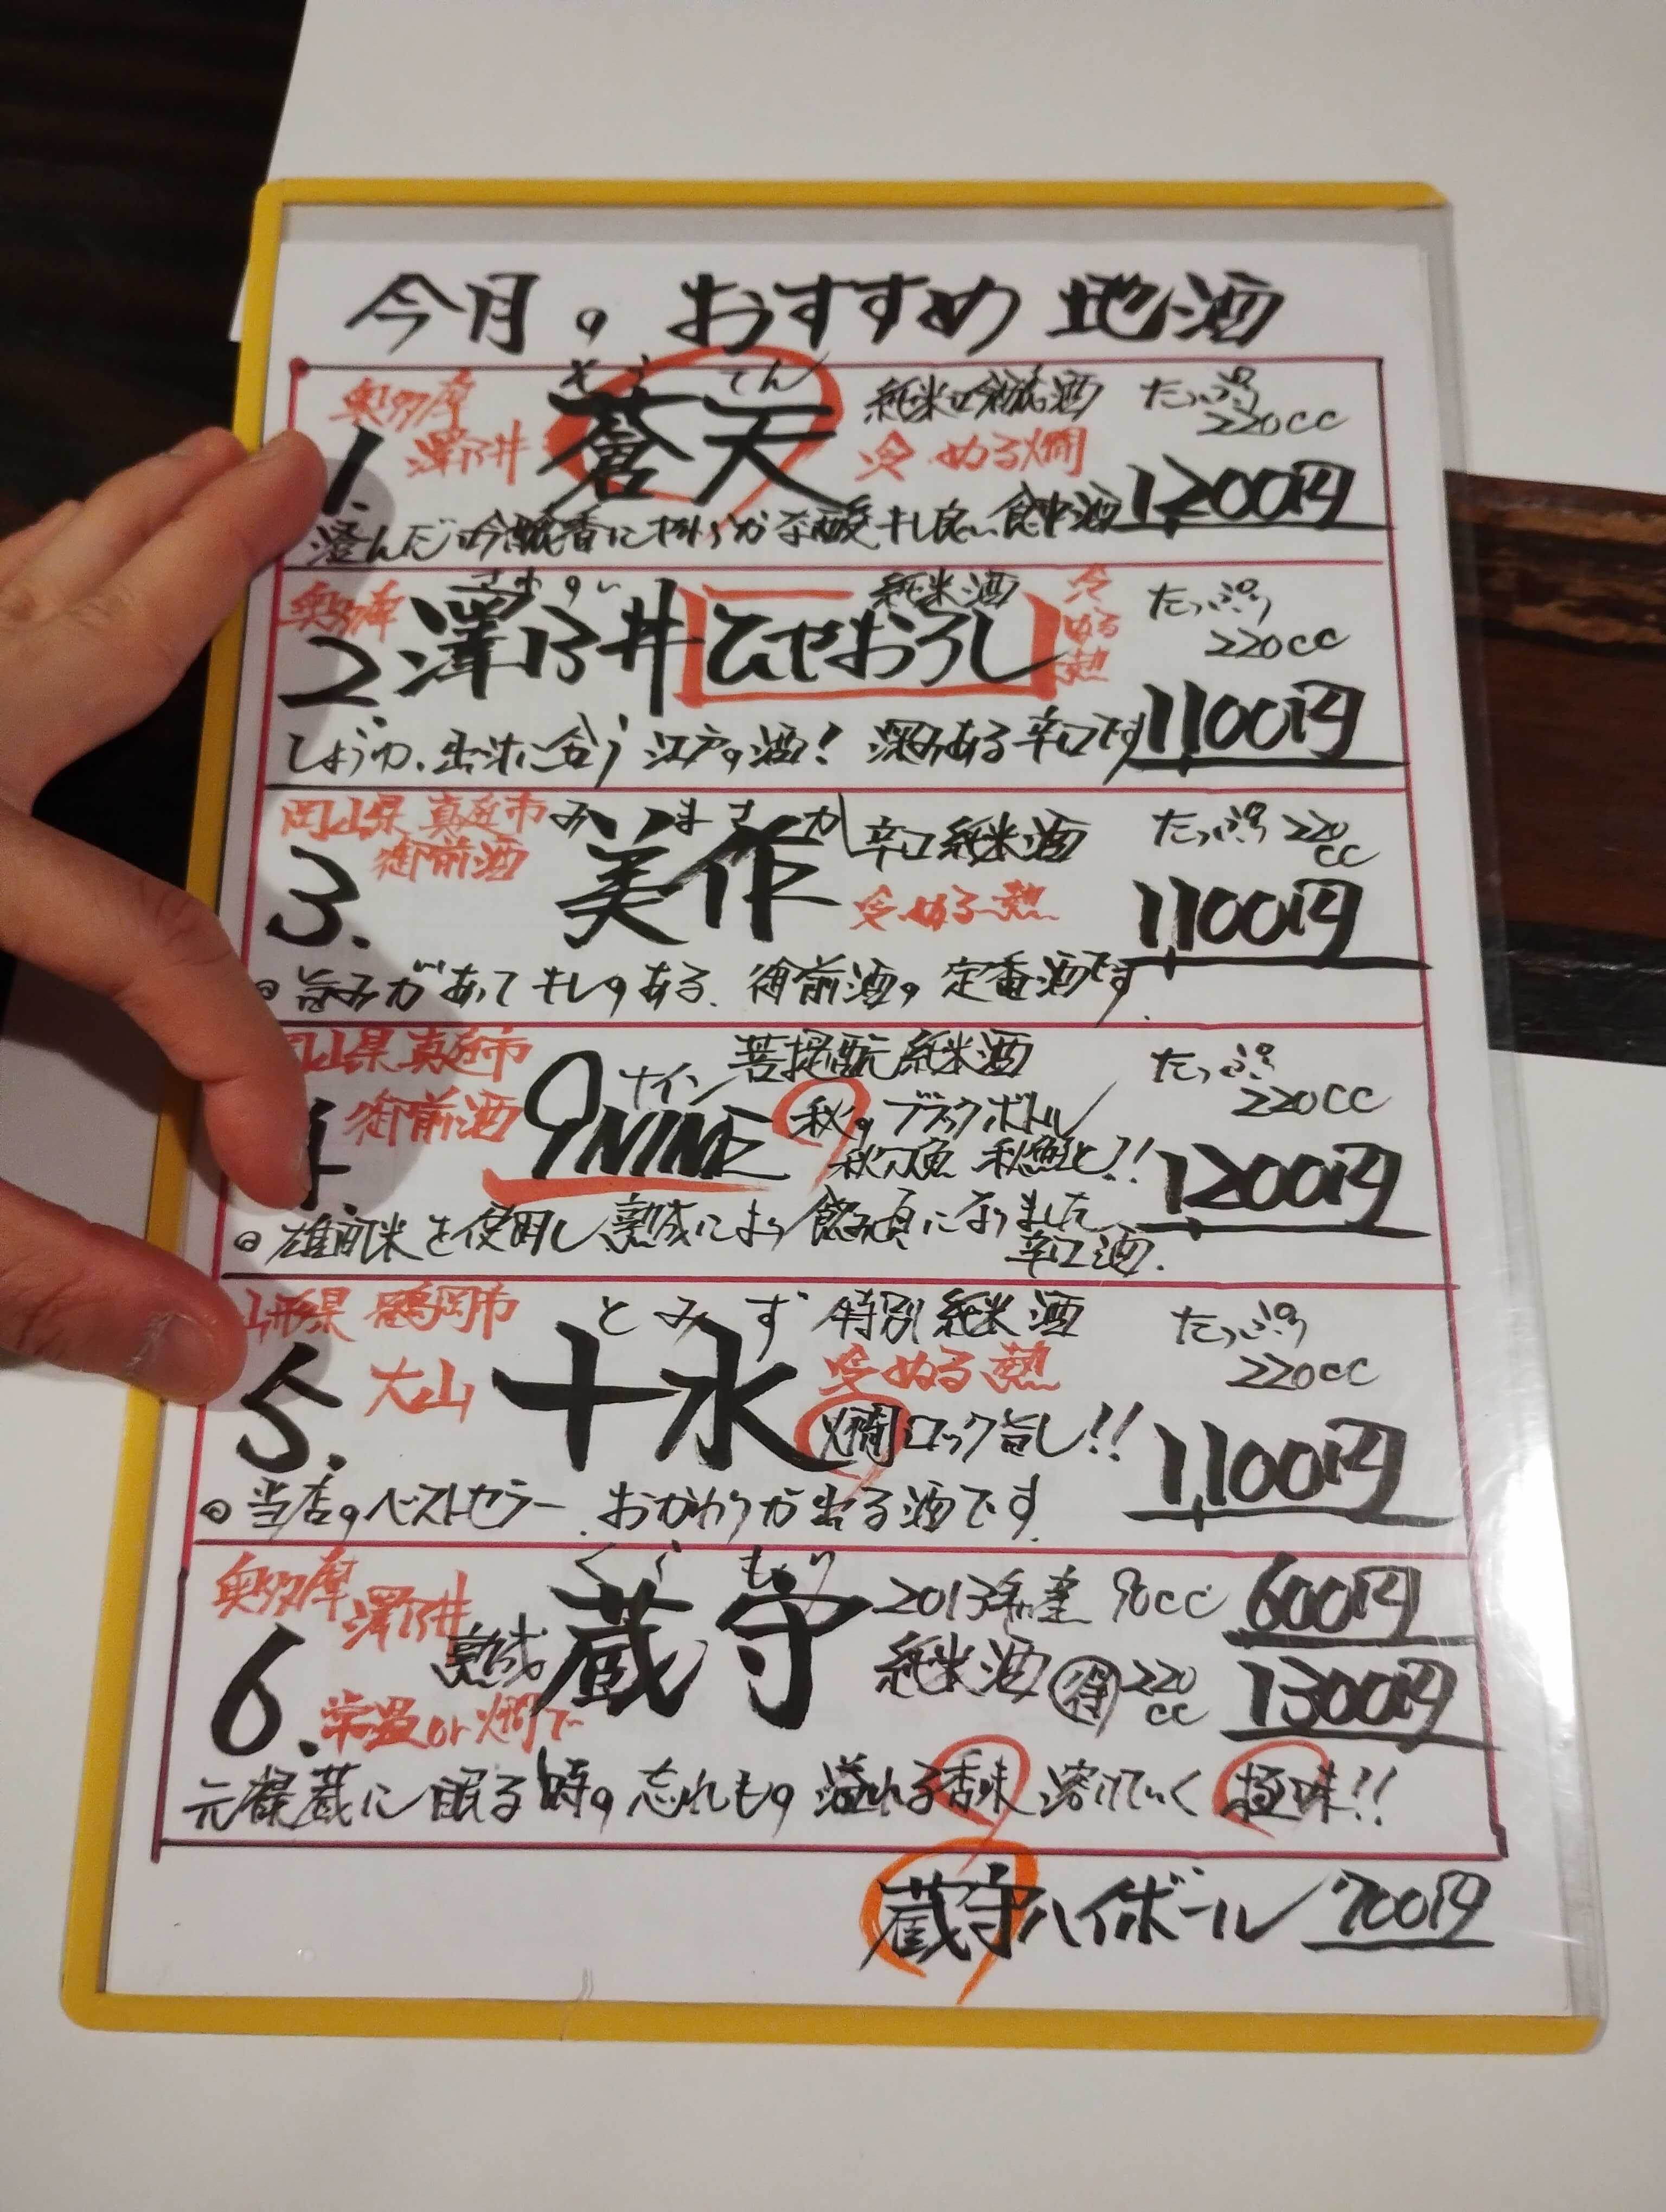 今月のおすすめ地酒
奥多摩
澤乃井
1.
そうてん
蒼天
純米吟醸酒
冷 ぬる燗
たっぷり
220cc
1200円
澄んだ吟醸香にやわらかな酸 キレ良い食中酒
奥多摩
2.
さわのい
澤乃井 ひやおろし
純米酒
冷
ぬる
熱
たっぷり
220cc
1100円
しょうゆ、出汁に合う江戸の酒! 深みある辛口です
岡山県 真庭市
御前酒
3.
みまさか
美作
辛口純米酒
冷 ぬる 熱
たっぷり220
cc
1100円
旨みがあってキレのある、御前酒の定番酒です
岡山県 真庭市
御前酒
4.
ナイン
9NINE
菩提酛純米酒
秋のブラックボトル
秋刀魚 秋鮭と!!
たっぷり
220cc
1200円
雄町米を使用し熟成により飲み頃になりました
辛口酒.
山形県 鶴岡市
大山
5.
とみず
十水
特別純米酒
冷 ぬる 熱
燗 ロック旨し!!
たっぷり
220cc
1,100円
当店のベストセラー、おかわりが出る酒です.
奥多摩
澤乃井
6.
常温or燗で
熟成
くらもり
蔵守
2013年産 90cc 600円
純米酒 得 220
cc
1300円
元禄蔵に眠る時の忘れもの 溢れる香味 溶けていく 極味!!
蔵守ハイボール 700円